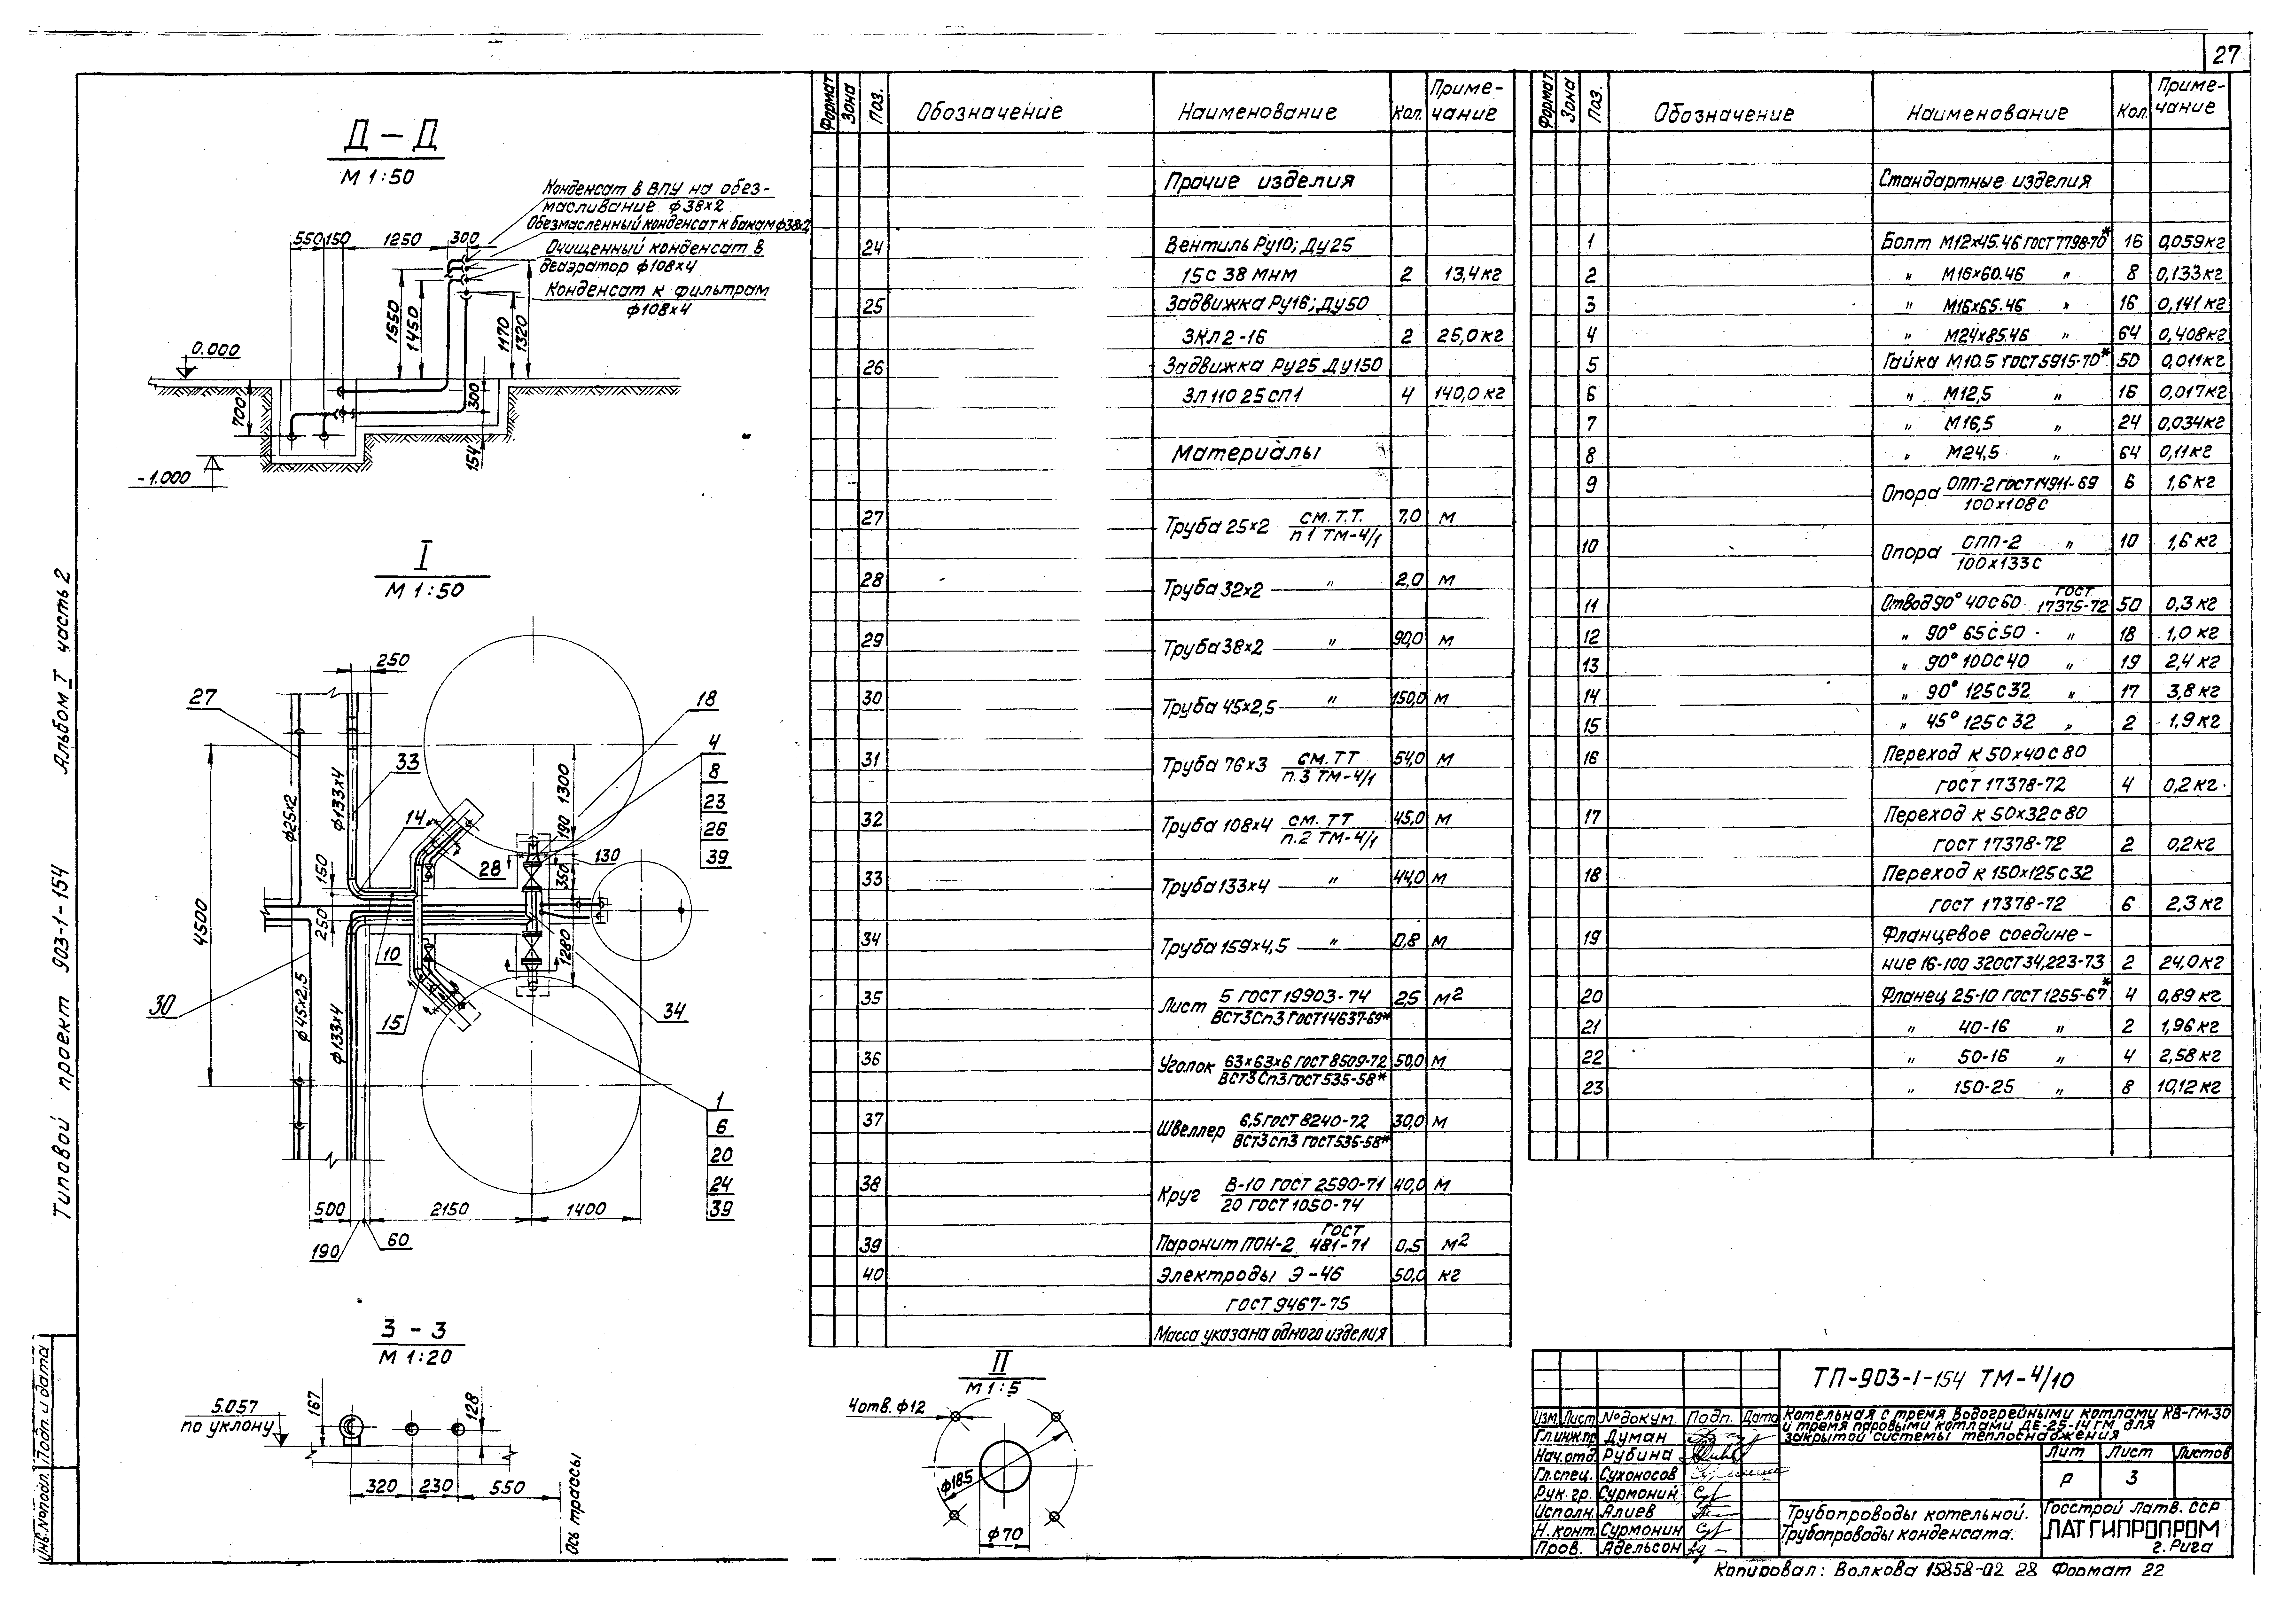 27
Д – Д
М 1:50
Конденсат в ВПУ на обез-
масливание ф38х2
Обезмасленный конденсат к бакам ф38х2
Очищенный конденсат в
деаэратор ф108х4
Конденсат к фильтрам
ф108х4
550 150 1250 300
1550
1450
1170
1320
0.000
700
300
154
-1.000
I
М 1:50
250
27
33
18
4
8
23
26
39
ф25х2
ф133х4
14
28
1300
190
130
350
150
250
4500
10
1280
30
ф45х2,5
ф133х4
15
34
1
6
20
24
39
500 2150 1400
190 60
3 – 3
М 1:20
5.057
по уклону
167
128
320 230 550
Ось трассы
II
М 1:5
4отв. ф12
ф185
ф70
Типавой проект 903-1-154 Альбом I часть 2
Инв.№подл. Подп. и дата
Формат Зона Поз. Обозначение Наименование Кол. Приме-чание
Прочие изделия
24 Вентиль Ру10; Ду25
15с 38 мнм 2 13,4кг
25 Задвижка Ру16; Ду50
ЗКЛ2-16 2 25,0кг
26 Задвижка Ру25 Ду150
ЗЛ 110 25 СП1 4 140,0 кг
Материалы
27 Труба 25х2 см. Т.Т. п 1 ТМ-4/1 7,0 м
28 Труба 32х2 — " 2,0 м
29 Труба 38х2 — " 90,0 м
30 Труба 45х2,5 — " 150,0 м
31 Труба 76х3 см. ТТ п.3 ТМ-4/1 54,0 м
32 Труба 108х4 см. ТТ п.2 ТМ-4/1 45,0 м
33 Труба 133х4 — " 44,0 м
34 Труба 159х4,5 — " 0,8 м
35 Лист 5 ГОСТ 19903-74 ВСт3Сп3 ГОСТ14637-69* 2,5 м2
36 Уголок 63х63х6 ГОСТ 8509-72 ВСт3Сп3 ГОСТ 535-58* 50,0 м
37 Швеллер 6,5 ГОСТ 8240-72 ВСт3сп3 ГОСТ535-58* 30,0 м
38 Круг В-10 ГОСТ 2590-71 20 ГОСТ 1050-74 40,0 м
39 Паронит ПОН-2 ГОСТ 481-71 0,5 м2
40 Электроды Э-46 50,0 кг
ГОСТ 9467-75
Масса указана одного изделия
Формат Зона Поз. Обозначение Наименование Кол. Приме-чание
Стандартные изделия
1 Болт М12х45.46 ГОСТ 7798-70* 16 0,059кг
2 " М16х60.46 " 8 0,133кг
3 " М16х65.46 " 16 0,141кг
4 " М24х85.46 " 64 0,408кг
5 Гайка М10.5 ГОСТ 5915-70* 50 0,011кг
6 " М12,5 " 16 0,017кг
7 " М16,5 " 24 0,034кг
8 " М24,5 " 64 0,11кг
9 Опора ОПП-2 ГОСТ14911-69 100х108С 6 1,6кг
10 Опора ОПП-2 " 100х133С 10 1,6 кг
11 Отвод 90° 40с60 ГОСТ 17375-72 50 0,3 кг
12 " 90° 65с50 " 18 1,0 кг
13 " 90° 100с40 " 19 2,4 кг
14 " 90° 125с32 " 17 3,8 кг
15 " 45° 125с 32 " 2 1,9 кг
16 Переход к 50х40 с 80
ГОСТ 17378-72 4 0,2 кг
17 Переход к 50х32с80
ГОСТ 17378-72 2 0,2кг
18 Переход к 150х125с32
ГОСТ 17378-72 6 2,3 кг
19 Фланцевое соедине-
ние 16-100 32ОСТ34,223-73 2 24,0кг
20 Фланец 25-10 ГОСТ 1255-67* 4 0,89 кг
21 " 40-16 " 2 1,96 кг
22 " 50-16 " 4 2,58 кг
23 " 150-25 " 8 10,12 кг
ТП-903-1-154 ТМ-4/10
Изм. Лист №докум. Подп. Дата
Гл.инж.пр Думан
Нач.отд. Рубина
Гл.спец. Сухоносов
Рук. гр. Сурмонин
Исполн. Алиев
Н.конт. Сурмонин
Пров. Адельсон
Котельная с тремя водогрейными котлами КВ-ГМ-30
и тремя паровыми котлами ДЕ-25-14ГМ для
закрытой системы теплоснабжения
Лит Лист Листов
Р 3
Трубопроводы котельной.
Трубопроводы конденсата.
Госстрой Латв. ССР
ЛАТГИПРОПРОМ
г. Рига
Копировал: Волкова 15858-02 28 Формат 22